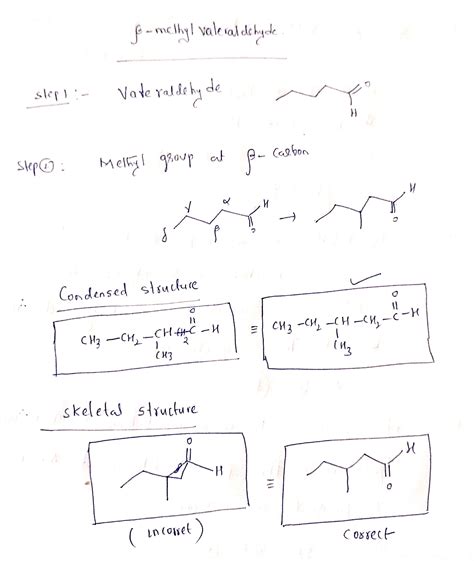 β-methyl valeraldehyde.
step1:- Valeraldehyde
O
H
Step②: Methyl group at β-carbon
γ α H
δ β O → H
O
∴ Condensed structure
✓
O
CH3-CH2-CH-CH2-C-H
CH3
≡
O
CH3-CH2-CH-CH2-C-H
CH3
∴ skeletal structure
O
H
≡
H
O
(incorret) correct